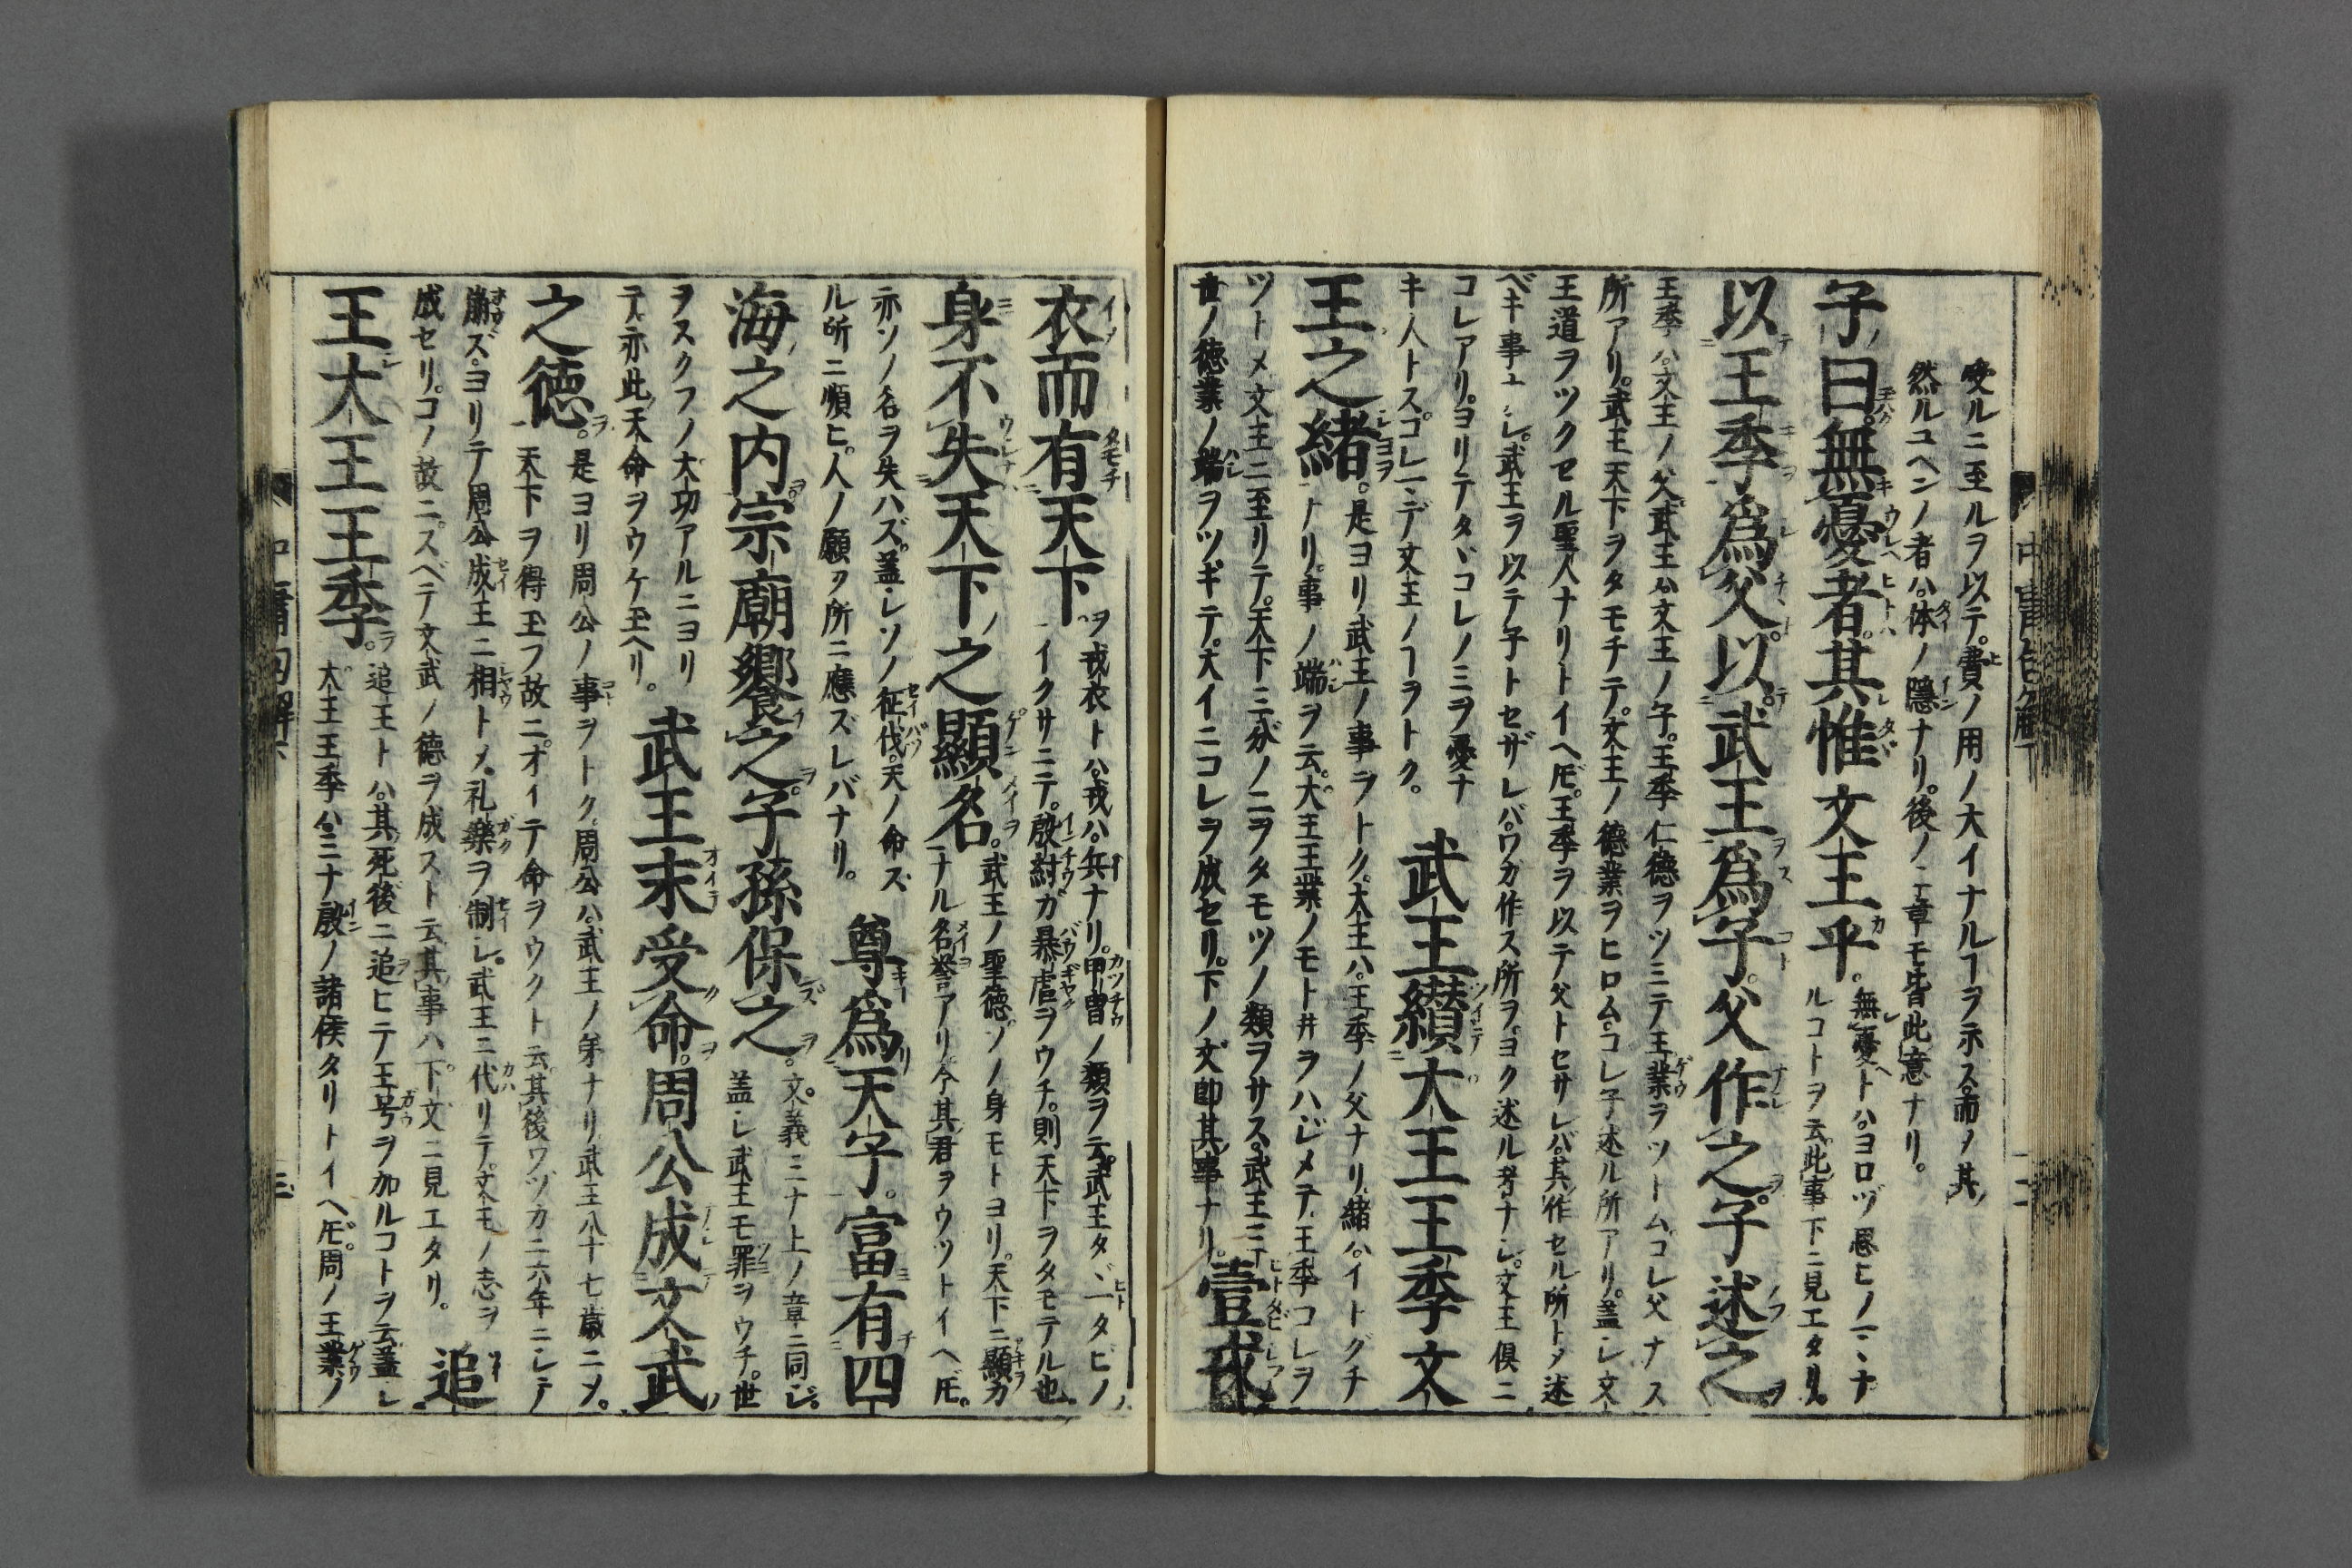 受ルニ至ルヲ以テ。費ノ用ノ大イナルヿヲ示ス。而メ其
然ルユヘンノ者ハ。体ノ隱ナリ。後ノ二章モ皆此意ナリ。
子曰。無憂者。其惟文王乎。
無憂トハ。ヨロヅ思ヒノマヽナ
ルコトヲ云。此事下ニ見エタリ。
以王季爲父。以武王爲子。父作之。子述之。
王季ハ。文王ノ父。武王ハ。文王ノ子。王季仁徳ヲツミテ王業ヲツトム。コレ父ナス
所アリ。武王天下ヲタモチテ。文王ノ德業ヲヒロム。コレ子述ル所アリ。蓋シ文
王道ヲツクセル聖人ナリトイヘ𪜈。王季ヲ以テ父トセサレバ。其作セル所トメ述
ベキ事ナシ。武王ヲ以テ子トセザレバ。ワカ作ス所ヲ。ヨク述ル者ナシ。文王倶ニ
コレアリ。ヨリテタヽコレノミヲ憂ナ
キ人トス。コレマデ文王ノヿヲトク。
武王纉大王王季文
王之緒。
是ヨリ武王ノ事ヲトク。大王ハ。王季ノ父ナリ。緒ハ。イトグチ
トリ。事ノ端ヲ云。大王王業ノモト井ヲハジメテ。王季コレヲ
ツトメ文王ニ至リテ。天下三分ノ二ヲタモツノ類ヲサス。武王三
世ノ徳業ノ端ヲツギテ。大イニコレヲ成セリ。下ノ文即其事ナリ。
壹戎
衣而有天下。
戎衣トハ。戎ハ。兵ナリ。甲冑ノ類ヲ云。武王タヾ一タビノ
イクサニテ。殷紂カ暴虐ヲウチ。則天下ヲタモテル也。
身不失天下之顯名。
武王ノ聖德。ソノ身モトヨリ。天下ニ顯カ
ナル名誉アリ。今其君ヲウツトイヘ𪜈。
亦ソノ名ヲ失ハズ。蓋シソノ征伐。天ノ命ズ
ル所ニ順ヒ。人ノ願フ所ニ應ズレバナリ。
尊爲天子。富有四
海之内。宗廟饗之。子孫保之。
文義ミナ上ノ章ニ同ジ。
蓋シ武王モ罪ヲウチ。世
ヲスクフノ大功アルニヨリ
テ。亦此天命ヲウケ玉ヘリ。
武王末受命。周公成文武
之徳。
是ヨリ周公ノ事ヲトク。周公ハ。武王ノ弟ナリ武王八十七歳ニメ。
天下ヲ得玉フ故ニ。オイテ命ヲウクト云。其後ワヅカニ六年ニシテ
崩ズ。ヨリテ周公成王ニ相トメ。礼樂ヲ制シ。武王ニ代リテ。文王ノ志ヲ
成セリ。コノ故ニ。スベテ文武ノ德ヲ成スト云。其事ハ下文ニ見エタリ。
追
王大王王季。
追王トハ。其死後ニ追ヒテ王号ヲ加ルコトヲ云。蓋シ
大王王季ハ。ミナ殷ノ諸侯タリトイヘ𪜈。周ノ王業ノ